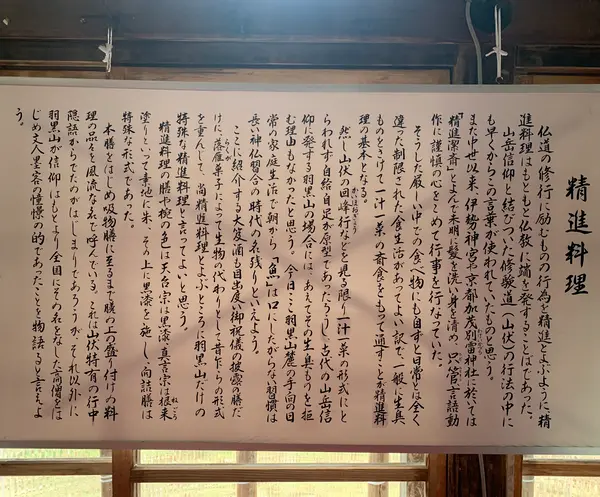 精進料理
仏道の修行に励むものの行為を精進とよぶように精
進料理はもともと仏教に端を発することはであった。
山岳信仰と結びついた修験道（山伏）の行法の中に
も早くからこの言葉が使われていたものと思う。
また中世以来、伊勢神宮や京都加茂別雷神社に於いては
「精進潔斎」とよんで未明に髪を洗い身を清め、只管言語動
作に謹慎の心をこめて行事を行なっていた。
そうした厳しい中での食べ物にも自ずと日常とは全く
違った制限された食生活があってよい訳で、一般に生臭
ものをさけて一汁一菜の斎食をもって通すことが精進料
理の基本となる。
然し山伏の回峰行などを見る限り一汁一菜の形式にと
らわれず自給自足が原型であったろうし、古代の山岳信
仰に発する羽黒山の場合には、あえてその生臭ものを拒
む理由もなかったと思う。今日ここ羽黒山麓の手向の日
常の家庭生活で朝から「魚」は口にしたがらない習慣は
長い神仏習合の時代の名残りといえよう。
ここに紹介する大笈酒も目出度い御祝儀の披露の膳だ
けに、落雁菓子によって生物の代わりとして昔乍らの形式
を重んじて、尚精進料理とよぶところに羽黒山だけの
特殊な精進料理と言ってよいと思う。
精進料理の膳や椀の色は天台宗は黒漆、真言宗は根来
塗りといって素地に朱、その上に黒漆を施し、尚詰膳は
特殊な形式であった。
本膳をはじめ吸物膳に至るまで膳の上の盛り付けの料
理の品々を風流な名で呼んでいる。これは山伏特有の行中
隠語からでたのがはじまりであろうが、それ以外に
羽黒山が信仰はもとより全国にその名をなした高僧をは
じめ文人墨客の憧憬の的であったことを物語ると言えよ
う。